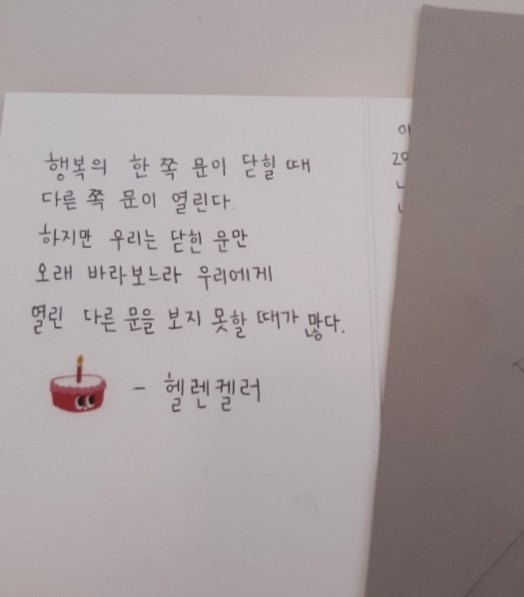 행복의 한 쪽 문이 닫힐 때
다른 쪽 문이 열린다.
하지만 우리는 닫힌 문만
오래 바라보느라 우리에게
열린 다른 문을 보지 못할 때가 많다.
- 헬렌켈러
20